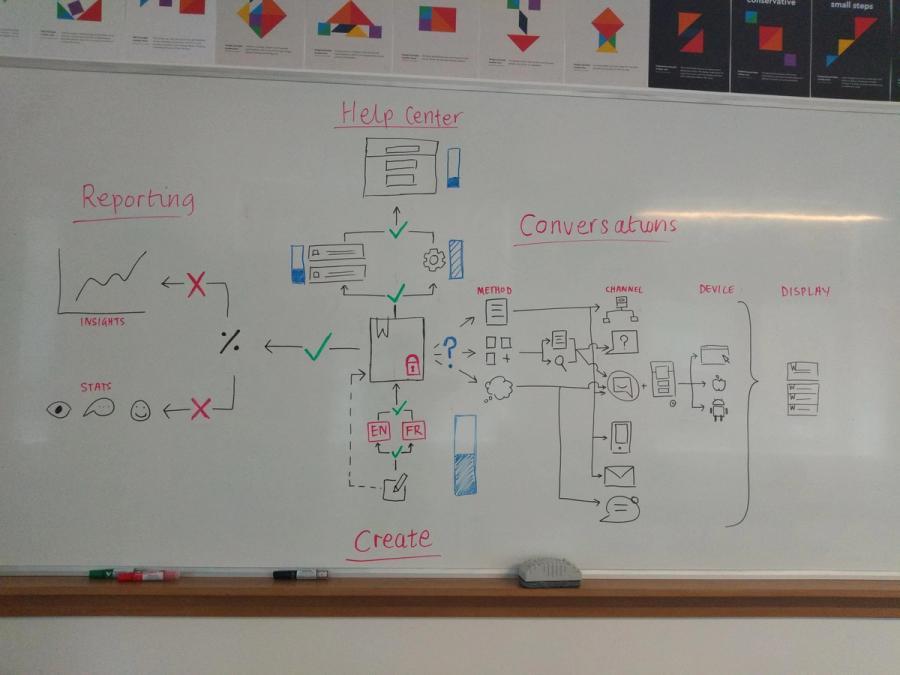 conservative
small steps
Help Center
Reporting
Conversations
METHOD
CHANNEL
DEVICE
DISPLAY
INSIGHTS
%
?
?
+
+
W
W
W
W
STATS
EN
FR
Create